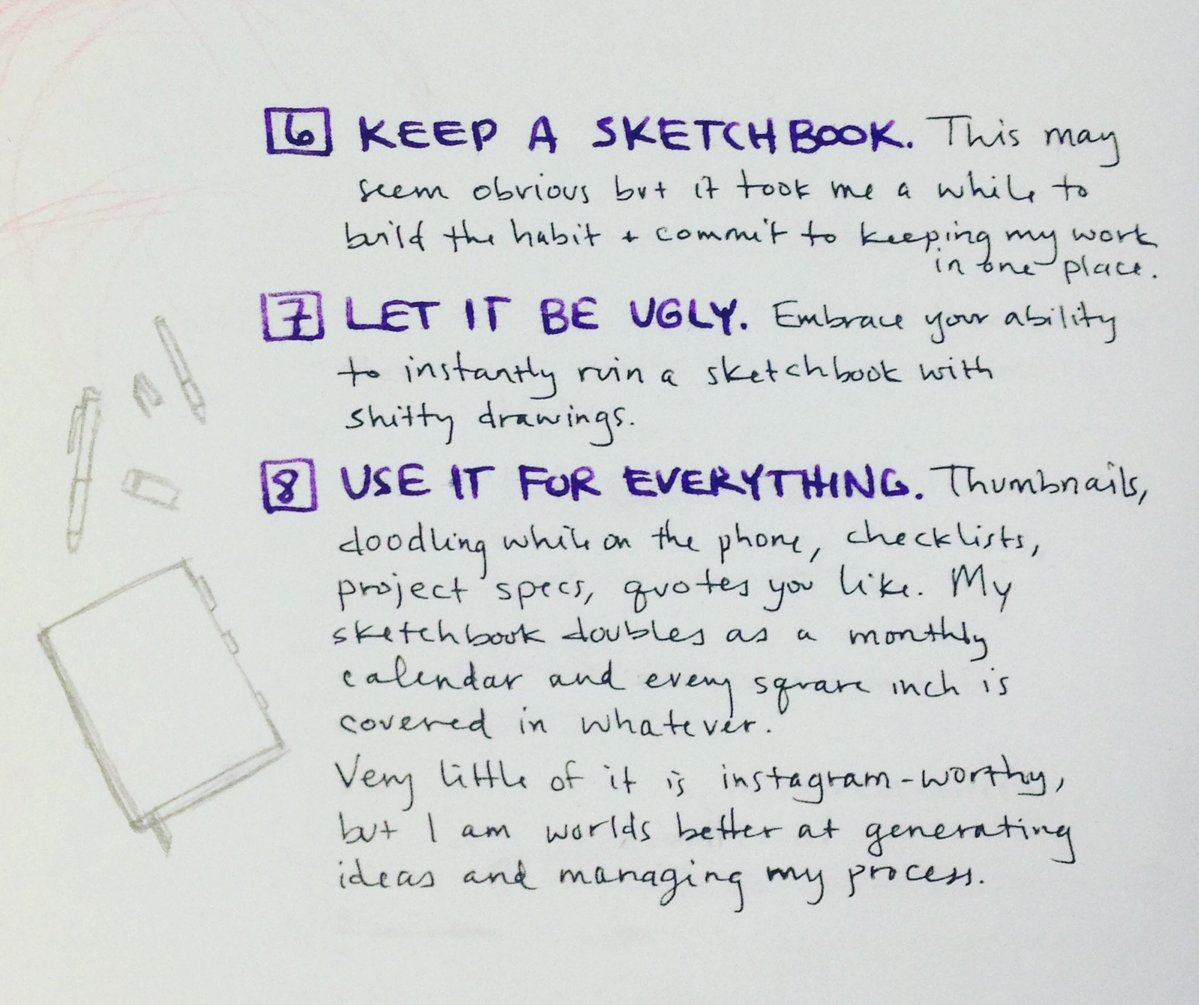 6 KEEP A SKETCHBOOK. This may
seem obvious but it took me a while to
build the habit + commit to keeping my work
in one place.
7 LET IT BE UGLY. Embrace your ability
to instantly ruin a sketchbook with
shitty drawings.
8 USE IT FOR EVERYTHING. Thumbnails,
doodling while on the phone, checklists,
project specs, quotes you like. My
sketchbook doubles as a monthly
calendar and every square inch is
covered in whatever.
Very little of it is instagram-worthy,
but I am worlds better at generating
ideas and managing my process.